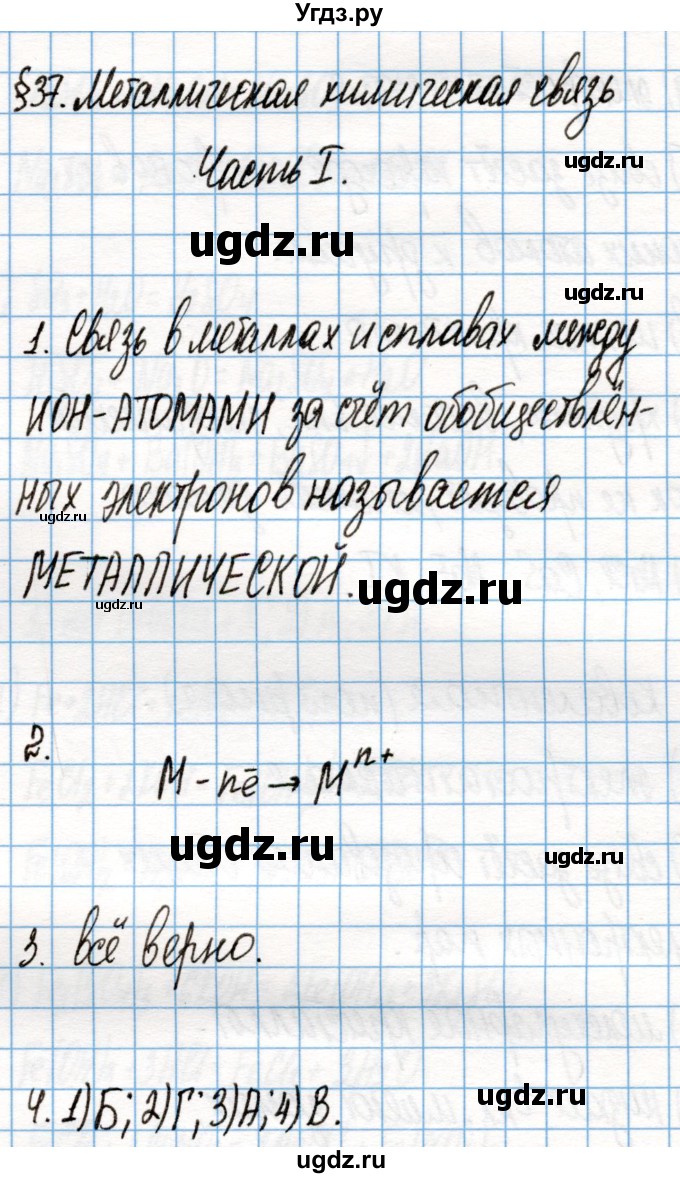 Угдз.ру
§37. Металлическая химическая связь
ugdz.ru
Часть I.
ugdz.ru
ugdz.ru
1. Связь в металлах и сплавах между
ИОН-АТОМАМИ за счёт обобществлён-
ных электронов называется
ugdz.ru
МЕТАЛЛИЧЕСКОЙ.
ugdz.ru
ugdz.ru
2.
M - nē → Mⁿ⁺
ugdz.ru
ugdz.ru
3. всё верно.
ugdz.ru
4. 1)Б; 2)Г; 3)А; 4)В.
ugdz.ru